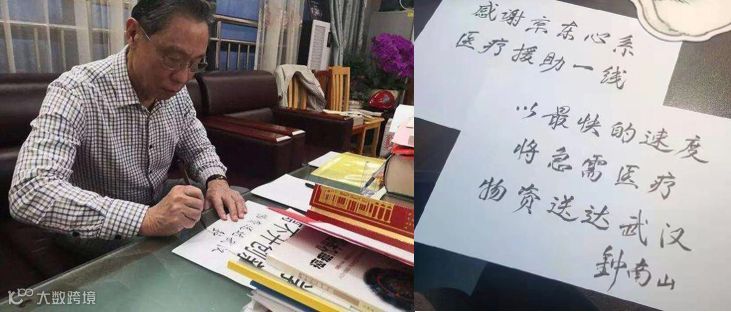 感谢京东心系
医疗援助一线
以最快的速度
将急需医疗
物资送达武汉
钟南山
大数跨境